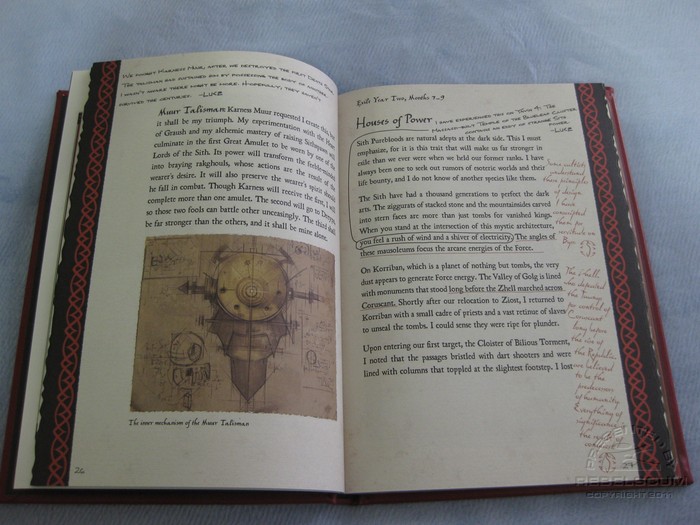 WE FOUGHT KARNESS MUUR, AFTER WE DESTROYED THE FIRST DEATH STAR.
THE TALISMAN HAD SUSTAINED HIM BY POSSESSING THE BODY OF ANOTHER.
THERE MIGHT BE MORE. HOPEFULLY, THEY HAVEN'T
SURVIVED THE CENTURIES. —LUKE
Muur Talisman: Karness Muur requested I create this, but
it shall be my triumph. My experimentation with the Heart
of Graush and my alchemic mastery of raising Sithspawn will
culminate in the first Great Amulet to be worn by one of the
Lords of the Sith. Its power will transform the feebleminded
into braying rakghouls, whose actions are the result of the
wearer's desire. It will also preserve the wearer's spirit should
he fall in combat. Though Karness will receive the first, I will
complete more than one amulet. The second will go to Dreypa,
so those two fools can battle other unceasingly. The third shall
be far stronger than the others, and it shall be mine alone.
The inner mechanism of the Muur Talisman
26
Exile Year Two, Months 7-9
Houses of Power
I HAVE EXPERIENCED THIS ON YAVIN 4. THE
MASSASSI-BUILT TEMPLE OF THE BLUELEAF CLUSTER
CONTAINS AN EDDY OF STRANGE SITH
POWER.
—LUKE
Sith Purebloods are natural adepts at the dark side. This I must
emphasize, for it is this trait that will make us far stronger in
exile than we ever were when we held our former ranks. I have
always been one to seek out rumors of esoteric worlds and their
life bounty, and I do not know of another species like them.
The Sith have had a thousand generations to perfect the dark
arts. The ziggurats of stacked stone and the mountainsides carved
into stern faces are more than just tombs for vanished kings.
When you stand at the intersection of this mystic architecture,
you feel a rush of wind and a shiver of electricity. The angles of
these mausoleums focus the arcane energies of the Force.
On Korriban, which is a planet of nothing but tombs, the very
dust appears to generate Force energy. The Valley of Golg is lined
with monuments that stood long before the Zhell marched across
Coruscant. Shortly after our relocation to Ziost, I returned to
Korriban with a small cadre of priests and a vast retinue of slaves
to unseal the tombs. I could sense they were ripe for plunder.
Upon entering our first target, the Cloister of Bilious Torment,
I noted that the passages bristled with dart shooters and were
lined with columns that toppled at the slightest footstep. I lost
understand
these principles
of design.
I have
them for
The Zhell,
who departed
the Taungs
for control of
Coruscant
long before
the rise of
the Republic,
are believed
to be the
progenitors
of humanity.
Everything of
27
REBELSCUM
COPYRIGHT 2011